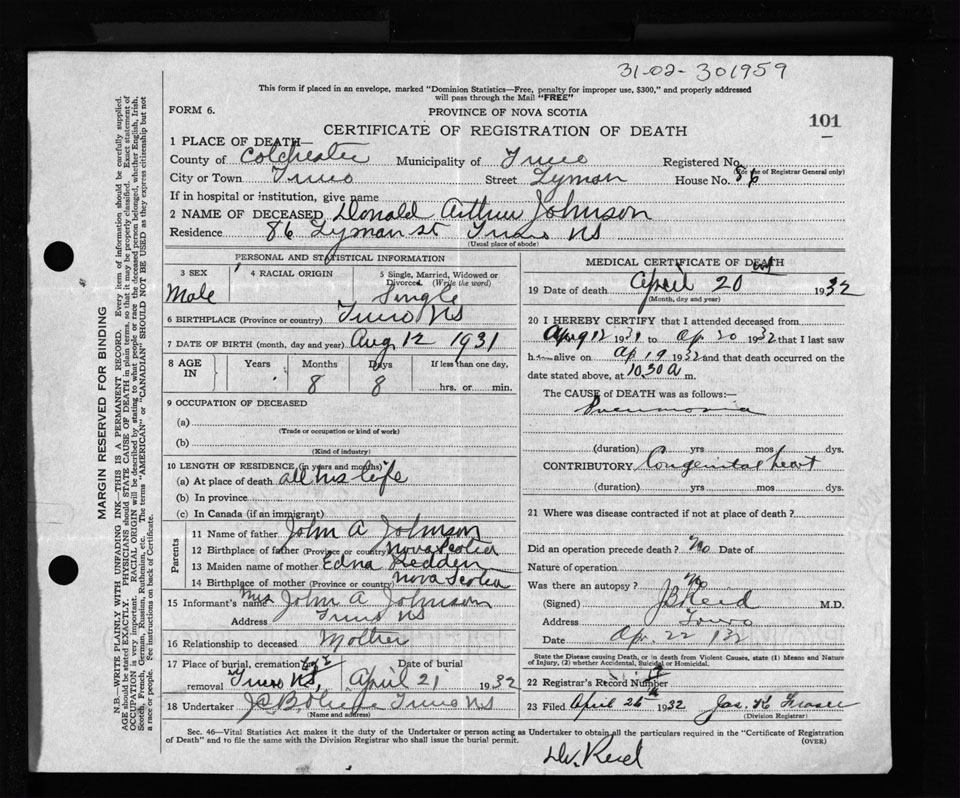 31-02-301959
This form if placed in an envelope, marked "Dominion Statistics—Free, penalty for improper use, $300," and properly addressed
will pass through the Mail "FREE"
FORM 6.
PROVINCE OF NOVA SCOTIA
CERTIFICATE OF REGISTRATION OF DEATH
101
1 PLACE OF DEATH—
County of Colchester Municipality of Truro Registered No.
(For use of Registrar General only)
City or Town Truro Street Lyman House No. 86
If in hospital or institution, give name
2 NAME OF DECEASED Donald Arthur Johnson
Residence 86 Lyman st Truro NS
(Usual place of abode)
PERSONAL AND STATISTICAL INFORMATION
3 SEX Male
4 RACIAL ORIGIN
5 Single, Married, Widowed or Divorced (Write the word) Single
6 BIRTHPLACE (Province or country) Truro NS
7 DATE OF BIRTH (month, day and year) Aug 12 1931
8 AGE IN Years Months Days If less than one day,
8 8 hrs. or min.
9 OCCUPATION OF DECEASED
(a)
(Trade or occupation or kind of work)
(b)
(Kind of industry)
10 LENGTH OF RESIDENCE (in years and months)
(a) At place of death all his life
(b) In province
(c) In Canada (if an immigrant)
Parents
11 Name of father John A Johnson
12 Birthplace of father (Province or country) Nova Scotia
13 Maiden name of mother Edna Redden
14 Birthplace of mother (Province or country) Nova Scotia
15 Informant's name Mrs John A Johnson
Address Truro NS
16 Relationship to deceased Mother
17 Place of burial, cremation or removal Truro NS, Date of burial April 21 1932
18 Undertaker Truro NS
(Name and address)
MEDICAL CERTIFICATE OF DEATH
19 Date of death April 20 1932
(Month, day and year)
20 I HEREBY CERTIFY that I attended deceased from
12 1931 to Ap 20 1932 that I last saw
h alive on Ap 19 1932 and that death occurred on
date stated above, at 10.30 a m.
The CAUSE of DEATH was as follows:—
Pneumonia
(duration) yrs mos dys.
CONTRIBUTORY Congenital heart
(duration) yrs mos dys.
21 Where was disease contracted if not at place of death?
Did an operation precede death? No Date of
Nature of operation
Was there an autopsy? No
(Signed) J B Reid M.D.
Address Truro
Date Ap. 22 132
State the Disease causing Death, or in death from Violent Causes, state (1) Means and Nature
of Injury, (2) whether Accidental, Suicidal or Homicidal.
22 Registrar's Record Number
23 Filed April 26 1932 Jas. H Fraser
(Division Registrar)
Sec. 46—Vital Statistics Act makes it the duty of the Undertaker or person acting as Undertaker to obtain all the particulars required in the "Certificate of Registration
of Death" and to file the same with the Division Registrar who shall issue the burial permit.
(OVER)
Dr. Reid
MARGIN RESERVED FOR BINDING
N.B.—WRITE PLAINLY WITH UNFADING INK—THIS IS A PERMANENT RECORD. Every item of information should be carefully supplied.
AGE should be stated EXACTLY. PHYSICIANS should STATE CAUSE OF DEATH in plain terms, so that it may be properly classified. Exact statement of
OCCUPATION is very important. RACIAL ORIGIN will be described by stating to what people or race the deceased person belonged, whether English, Irish,
Scotch, French, German, Russian, Ruthenian, etc. The terms "AMERICAN" or "CANADIAN" SHOULD NOT BE USED as they express citizenship but not
a race or people. See instructions on back of Certificate.